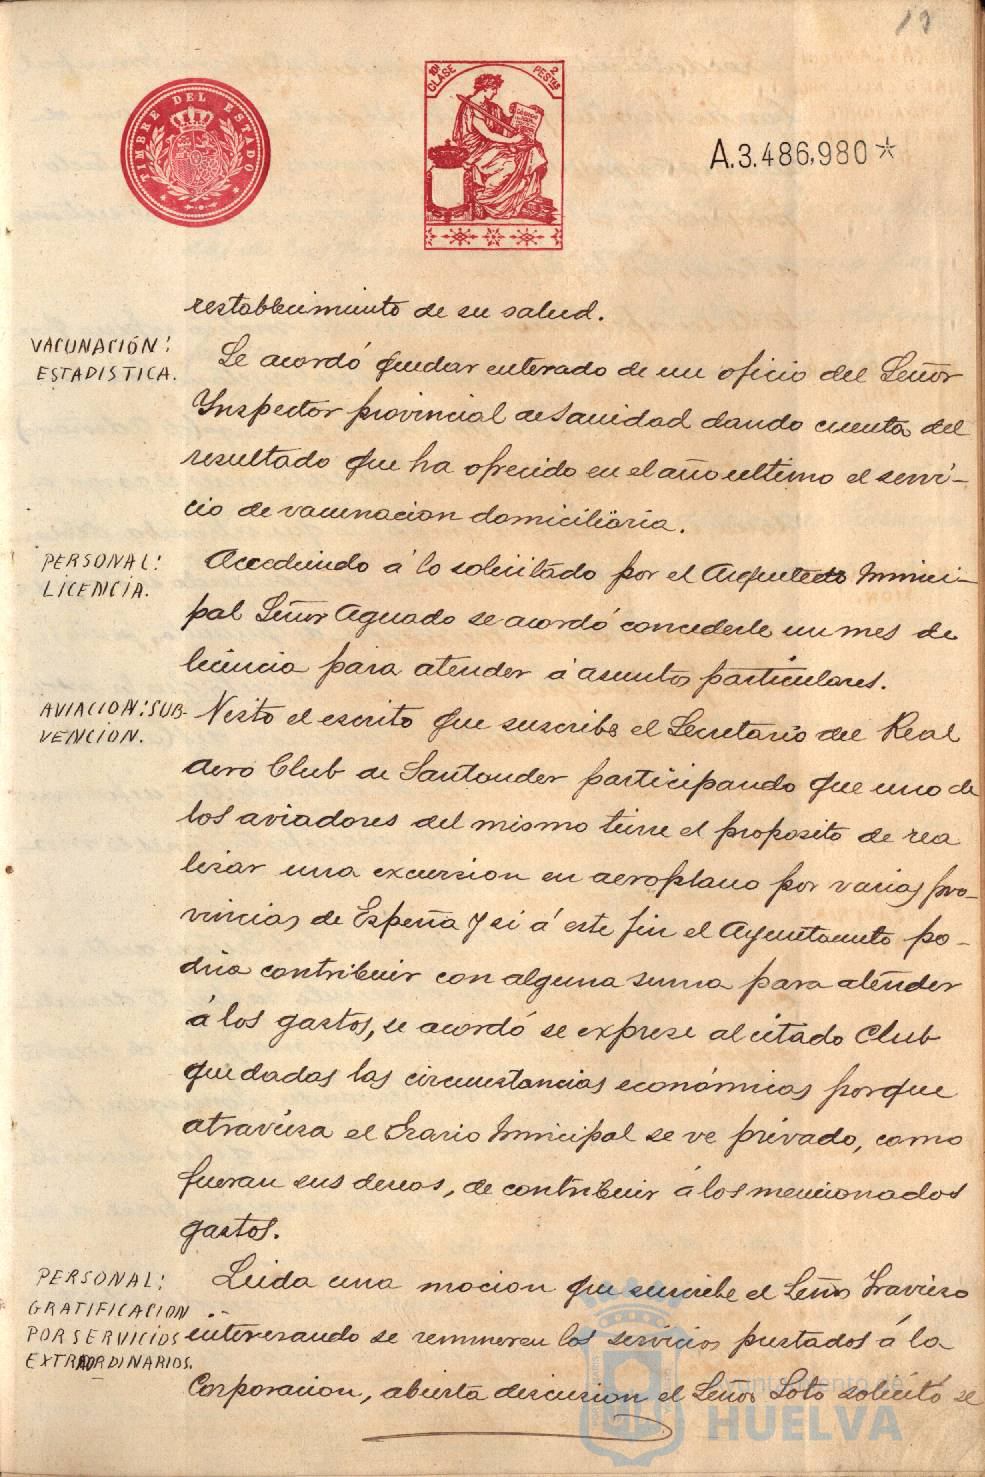 19
TIMBRE DEL ESTADO
10ª CLASE
2 PESTAS
A.3.486,980*
restablecimiento de su salud.
VACUNACIÓN:
ESTADISTICA.
Se acordó quedar enterado de un oficio del Señor
Inspector provincial de Sanidad dando cuenta del
resultado que ha ofrecido en el año ultimo el servi-
cio de vacunacion domiciliaria.
PERSONAL:
LICENCIA.
Accediendo á lo solicitado por el Arquitecto Munici-
pal Señor Aguado se acordó concederle un mes de
licencia para atender á asuntos particulares.
AVIACION: SUB-
VENCION.
Visto el escrito que suscribe el Secretario del Real
Aero Club de Santander participando que uno de
los aviadores del mismo tiene el proposito de rea
lizar una excursion en aeroplano por varias pro-
vincias de España y si á este fin el Ayuntamiento po-
dria contribuir con alguna suma para atender
á los gastos, se acordó se exprese al citado Club
que dadas las circunstancias económicas porque
atraviesa el Erario Municipal se ve privado, como
fueran sus deseos, de contribuir á los mencionados
gastos.
PERSONAL:
GRATIFICACION
POR SERVICIOS
EXTRAORDINARIOS.
Leida una mocion que suscribe el Señor Travieso
interesando se remuneren los servicios prestados á la
Corporacion, abierta discusion el Señor Soto solicitó se
Ayuntamiento de
HUELVA